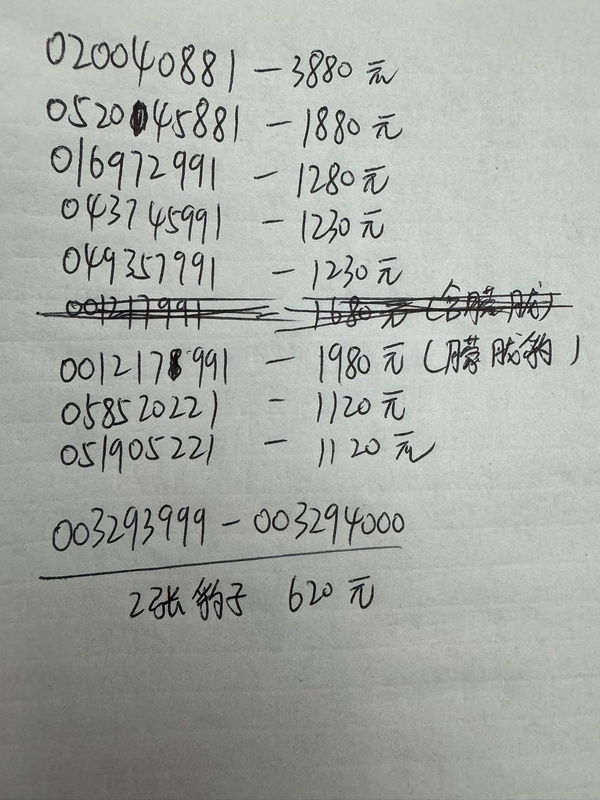 020040881 - 3880元
052045881 - 1880元
016972991 - 1280元
043745991 - 1230元
049357991 - 1230元
001217991 - 1680元 (含朦胧)
001217991 - 1980元 (朦胧豹)
058520221 - 1120元
051905221 - 1120元
003293999 - 003294000
2张豹子 620元